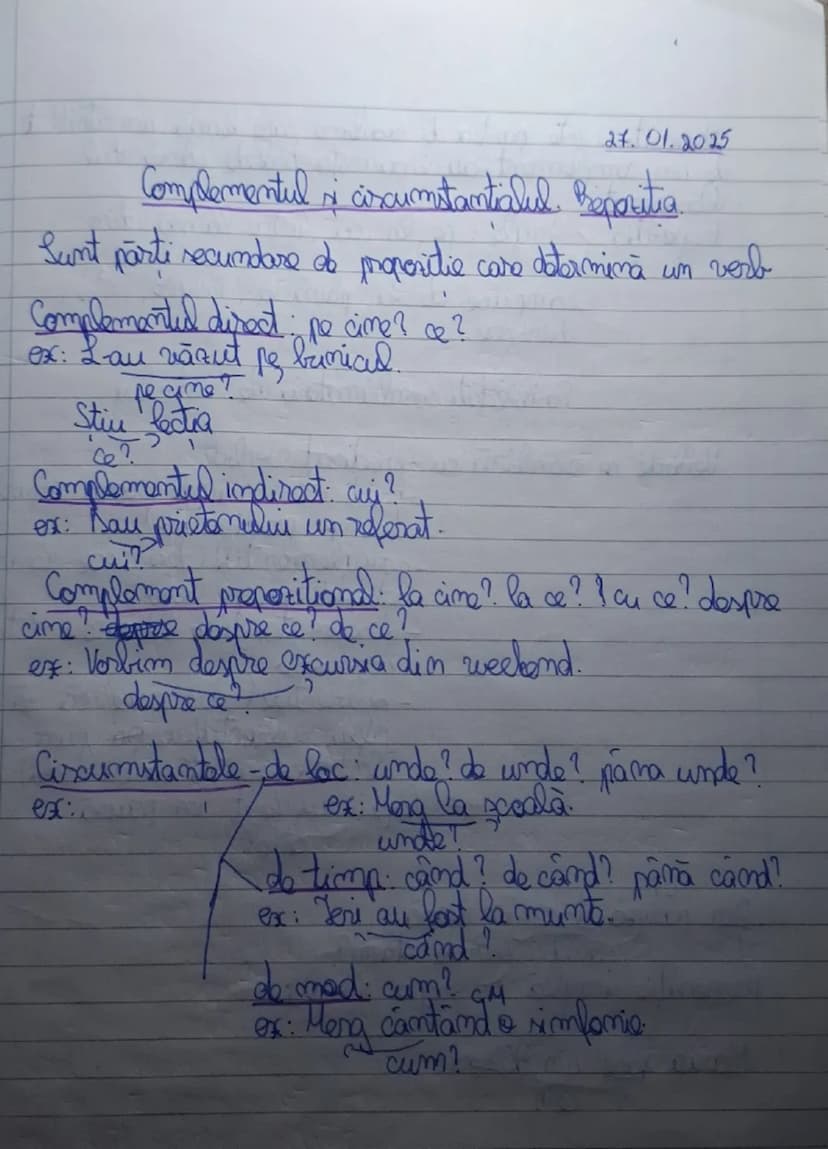 27.01.2025
Complementul și circumstanțialul. Prepoziția.
Sunt părți secundare de propoziție care determină un verb
Complementul direct: pe cine? ce?
ex: L-au văzut pe bunicul.
pe cine?
Știu lecția
ce?
Complementul indirect: cui?
ex: Dau prietenului un referat.
cui?
Complement prepozițional: la cine? la ce? cu ce? despre
cine? despre despre ce? de ce?
ex: Vorbim despre excursia din weekend.
despre ce?
Circumstanțele - de loc: unde? de unde? pâna unde?
ex: ex: Merg la școală.
unde?
de timp: când? de când? până când?
ex: Ieri au fost la munte.
când?
de mod: cum? CM
ex: Merg cântând o simfonie.
cum?